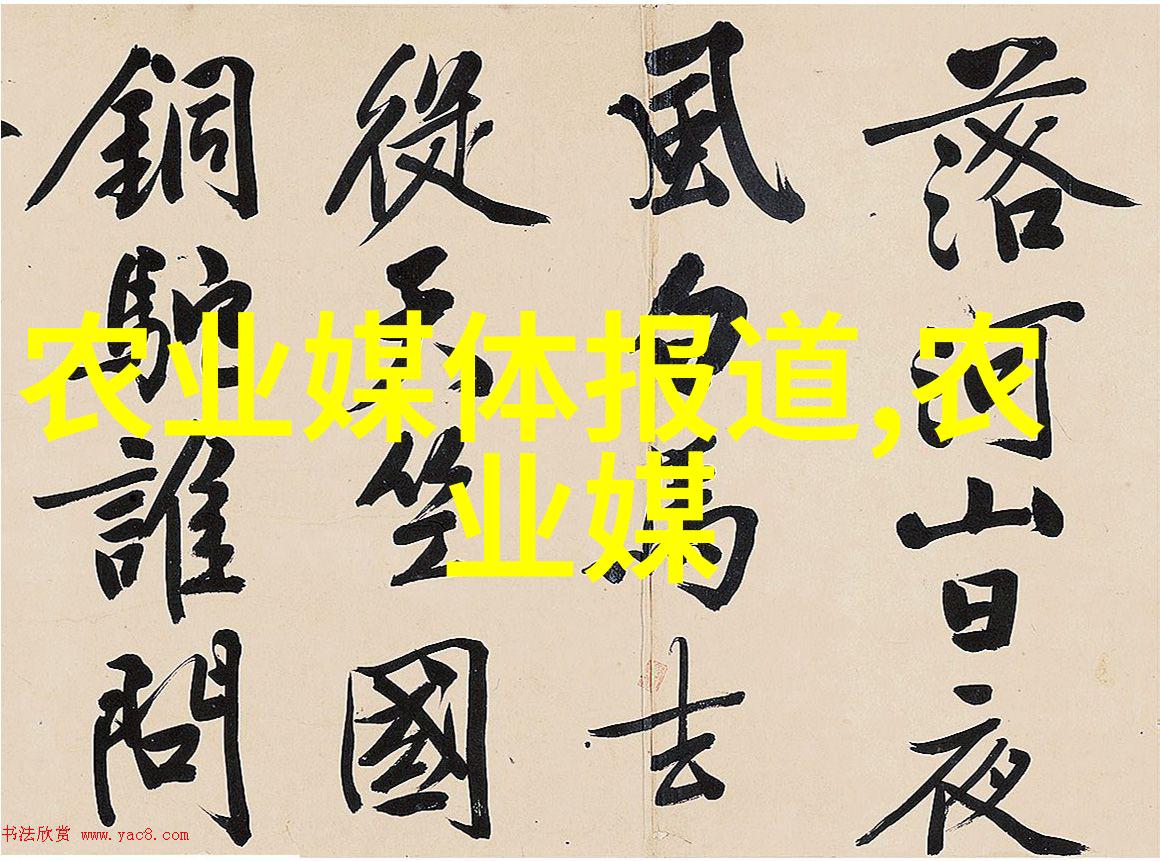 落河山日夜
風白馬去
從天竺國
銅駝誰問
农业媒体报道,农
业媒
书法欣赏 www.yac8.com